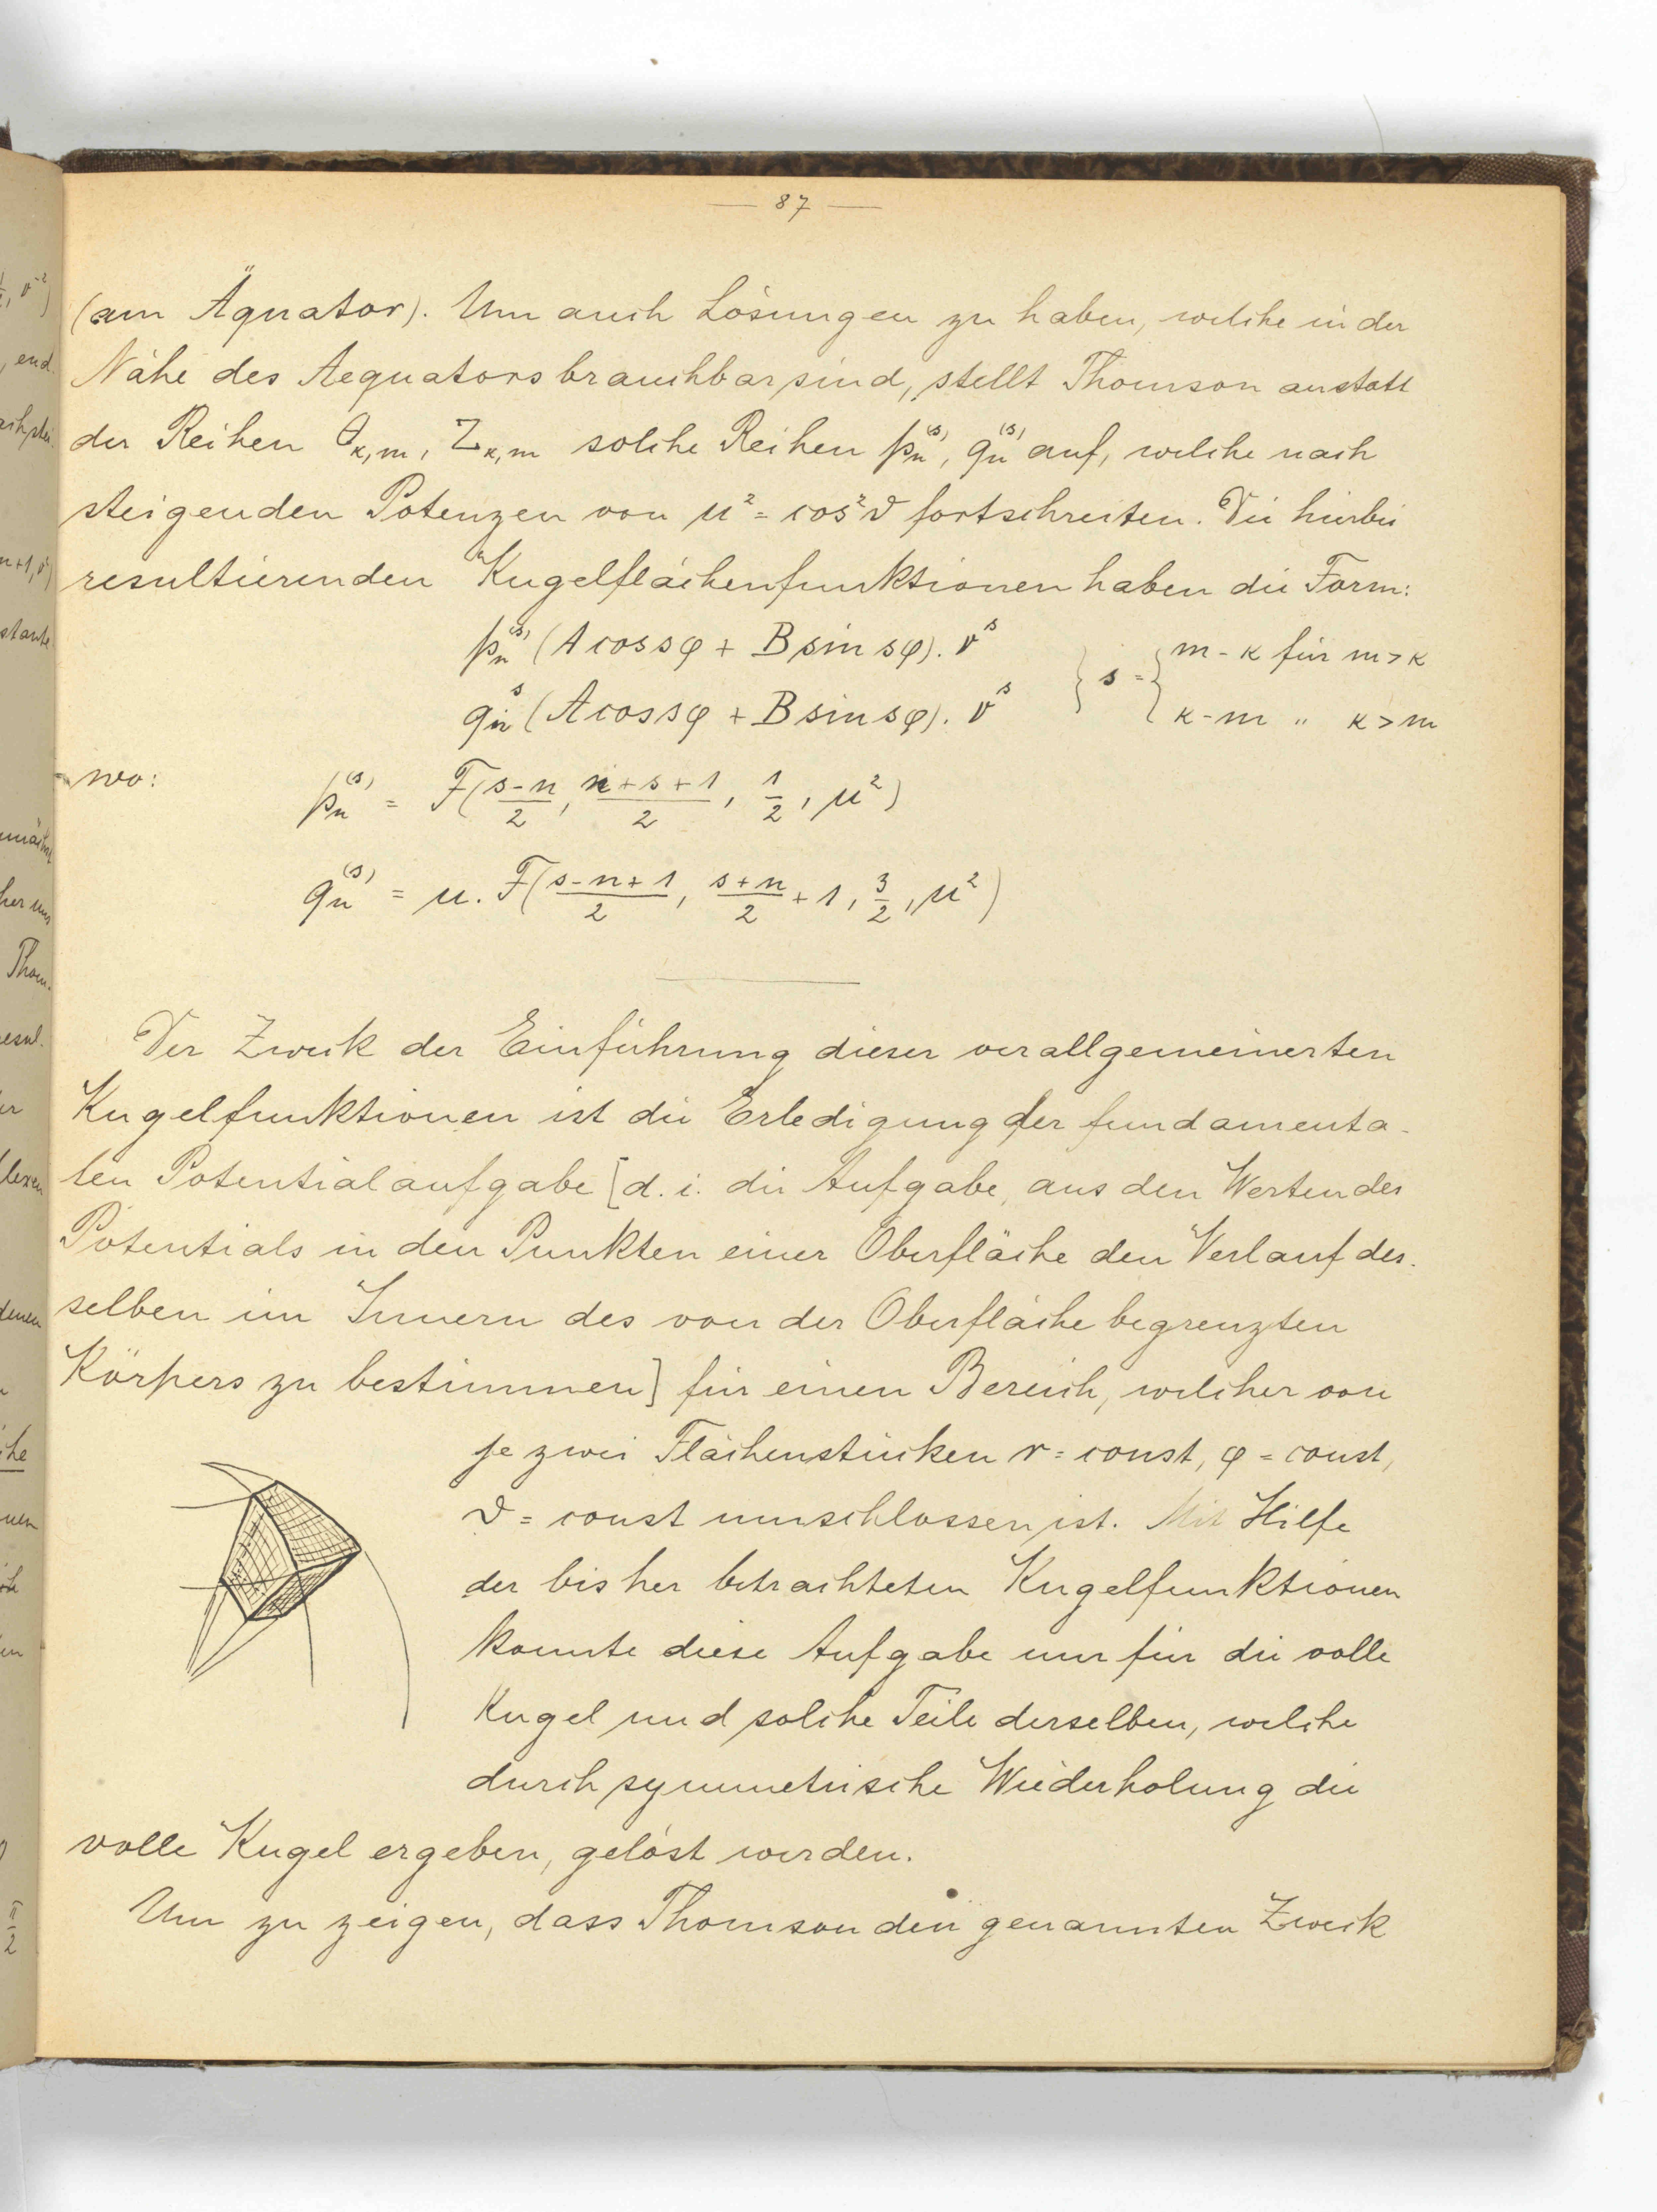 — 87 —
(am Äquator). Um auch Lösungen zu haben, welche in der
Nähe des Aequators brauchbar sind, stellt Thomson anstatt
der Reihen θ_{κ,m}, Z_{κ,m} solche Reihen p_n^{(s)}, q_n^{(s)} auf, welche nach
steigenden Potenzen von μ² = cos²ϑ fortschreiten. Die hierbei
resultierenden Kugelflächenfunktionen haben die Form:
p_n^{(s)} (A cos sφ + B sin sφ). ν^s
q_n^s (A cos sφ + B sin sφ). ν^s
} s = { m - κ für m > κ
κ - m " κ > m
wo: p_n^{(s)} = F(\frac{s-n}{2}, \frac{n+s+1}{2}, \frac{1}{2}, μ²)
q_n^{(s)} = μ. F(\frac{s-n+1}{2}, \frac{s+n}{2} + 1, \frac{3}{2}, μ²)
Der Zweck der Einführung dieser verallgemeinerten
Kugelfunktionen ist die Erledigung der fundamenta-
len Potentialaufgabe [d. i. die Aufgabe, aus den Werten des
Potentials in den Punkten einer Oberfläche den Verlauf des-
selben im Innern des von der Oberfläche begrenzten
Körpers zu bestimmen] für einen Bereich, welcher von
je zwei Flächenstücken r = const, φ = const,
ϑ = const umschlossen ist. Mit Hilfe
der bisher betrachteten Kugelfunktionen
konnte diese Aufgabe nur für die volle
Kugel und solche Teile derselben, welche
durch symmetrische Wiederholung die
volle Kugel ergeben, gelöst werden.
Um zu zeigen, dass Thomson den genannten Zweck